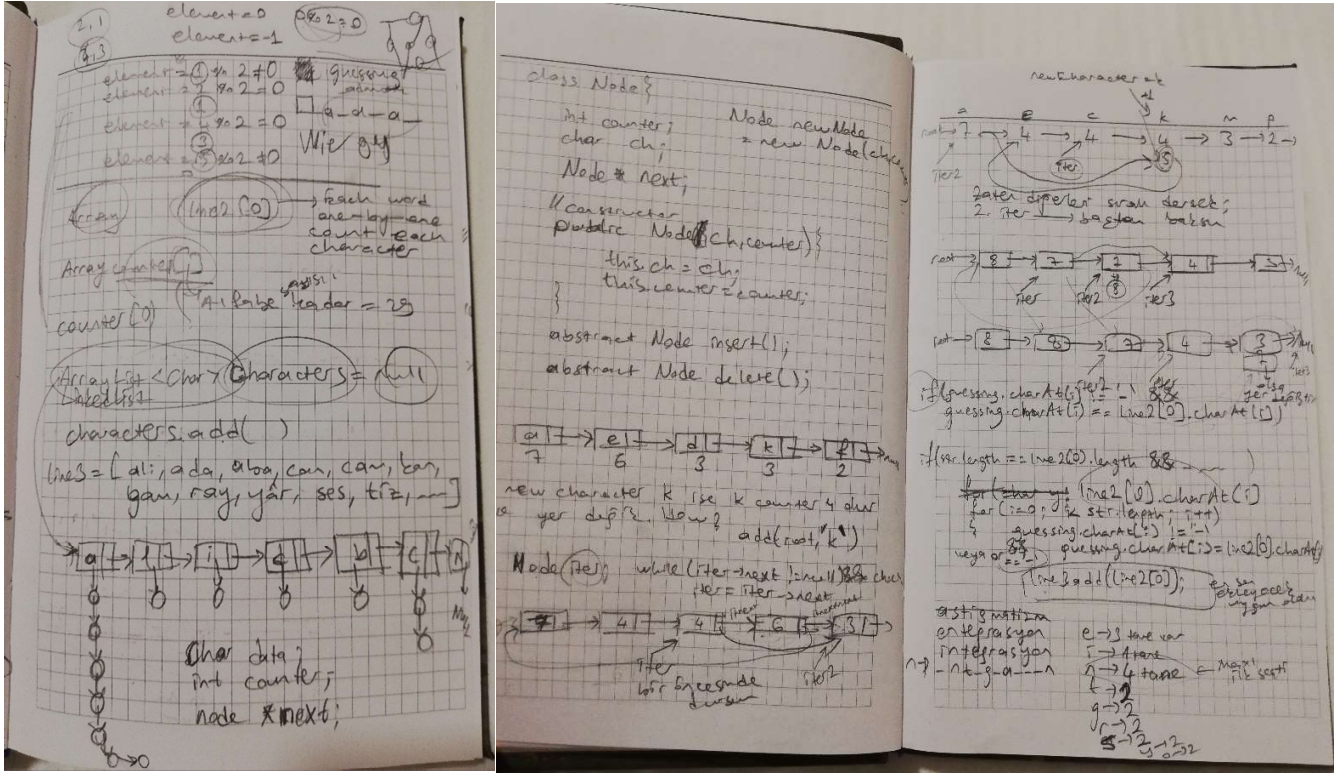 2,1
element=0
0%2=0
element=-1
2,3
element = 1 % 2 ≠ 0
element = 2 % 2 = 0
1
element = 4 % 2 = 0
3
element = 5 % 2 ≠ 0
guessing
a-d-a-
Array
line2[0] → Each word
one-by-one
count each
character
Array counter[]
sayısı
Alfabe kadar = 29
counter[0]
ArrayList <Char> Characters = null
LinkedList
characters.add( )
line3 = [ali, ada, aba, can, cam, kan,
gam, ray, yâr, ses, tiz, ---]
a l i d b c n
Null
Char data;
int counter;
node *next;
class Node{
int counter;
char ch;
Node * next;
Node newNode
= new Node(ch,co
//constructor
public Node(ch,counter){
this.ch = ch;
this.counter=counter;
}
abstract Node insert();
abstract Node delete();
a → e → d → k → f → null
7 6 3 3 2
new character k ise k counter 4 olur
ve yer değiş. How?
add(root,'k')
Node iter; while(iter->next != null && char
iter = iter->next
7 4 4 6 3
iter
bir öncesinde
dursun
iter2
newCharacter=k
+1
a e c k n p
root → 7 → 4 → 4 → 4 → 3 → 2 →
5
iter2
iter
Zaten diğerleri sıralı dersek;
2. iter → baştan baksın
root → 8 → 7 → 7 → 4 → 3 → null
8
iter iter2 iter3
root → 8 → 8 → 7 → 4 → 3 → null
iter2 iter
if(guessing.charAt(i) != '-' &&
guessing.charAt(i) == line2[0].charAt(i))
if(str.length == line2[0].length && ---- )
line2[0].charAt(i)
for(i=0; i< str.length; i++)
{ guessing.charAt(i) != '-'
&&
veya or guessing.charAt(i)=line2[0].charAt(
line3.add(line2[0]);
astigmatizm
entegrasyon
integrasyon
n → -nt-g-a---n
e → 3 tane var
i → 1 tane
n → 4 tane
t → 2
g → 2
r → 2
s → 2